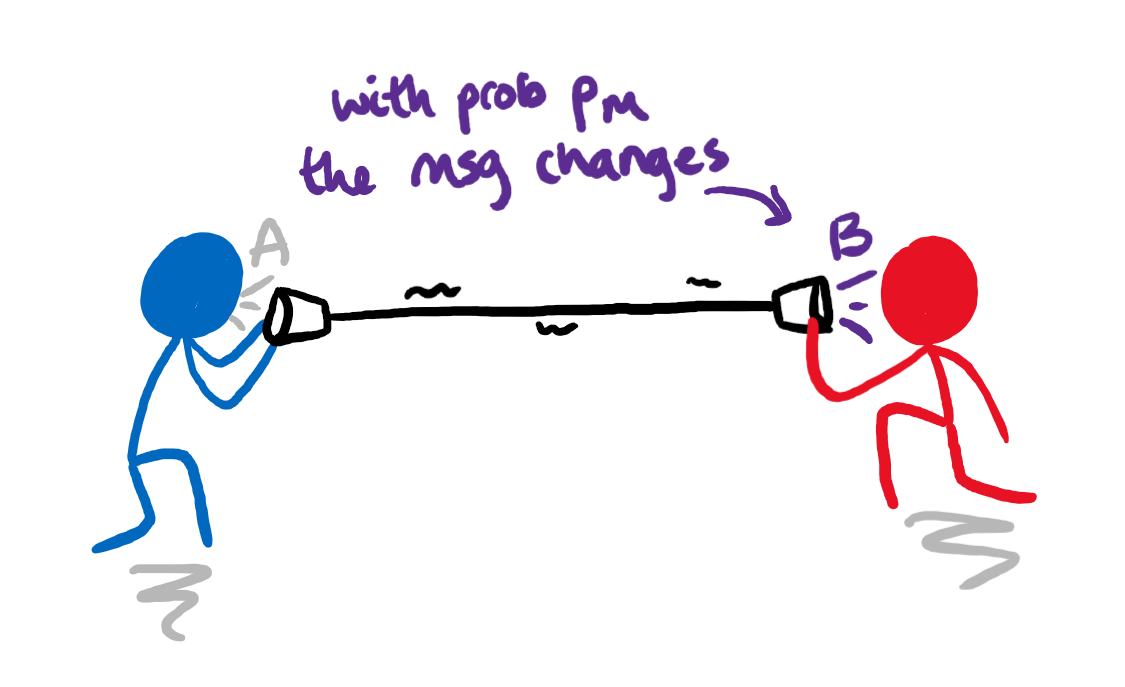 with prob PM
the msg changes
A
B